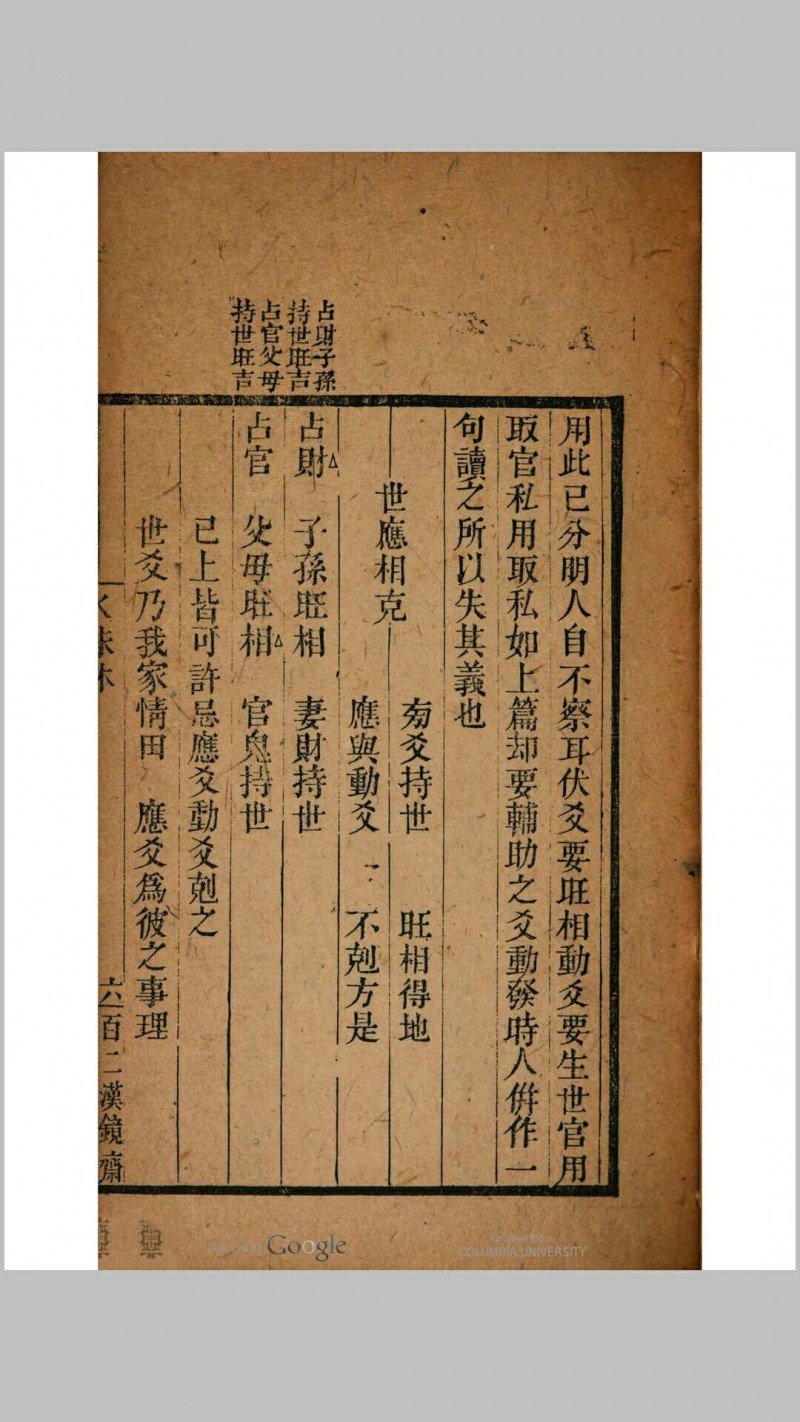 占財子孫
持世旺吉
占官父母
持世旺吉
用此已分明人自不察耳伏爻要旺相動爻要生世官用
取官私用取私如上篇却要輔助之爻動發時人併作一
句讀之所以失其義也
世應相克 旁爻持世 旺相得地
應與動爻 不剋方是
占財 子孫旺相 妻財持世
占官 父母旺相 官鬼持世
已上皆可許忌應爻動爻剋之
世爻乃我家情田 應爻爲彼之事理
六百二漢鏡齋
Google
Original from
COLUMBIA UNIVERSITY